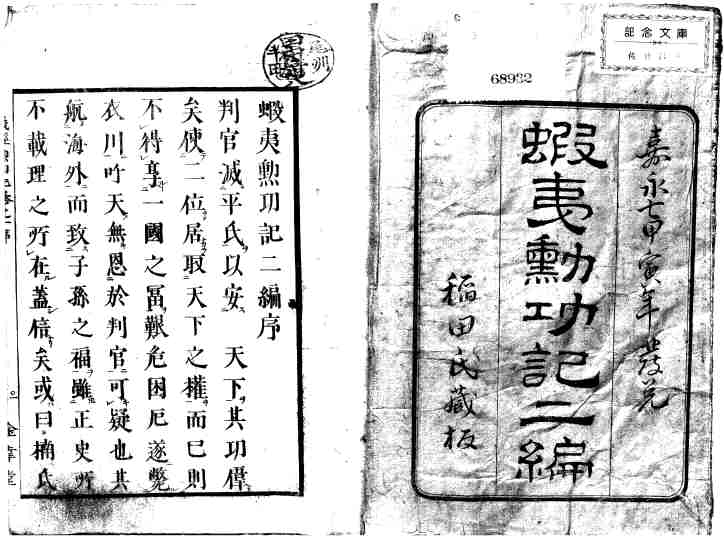 記念文庫
68932
嘉永七甲寅年發兌
蝦夷勲功記二編
稲田氏藏板
蝦夷勲功記二編序
判官滅平氏以安　天下其功偉
矣使二位居取天下之權而已則
不得享一國之冨艱危困厄遂斃
衣川吁天無恩於判官可疑也其
航海外而致子孫之福雖正史所
不載理之所在蓋信矣或曰楠氏
金華堂